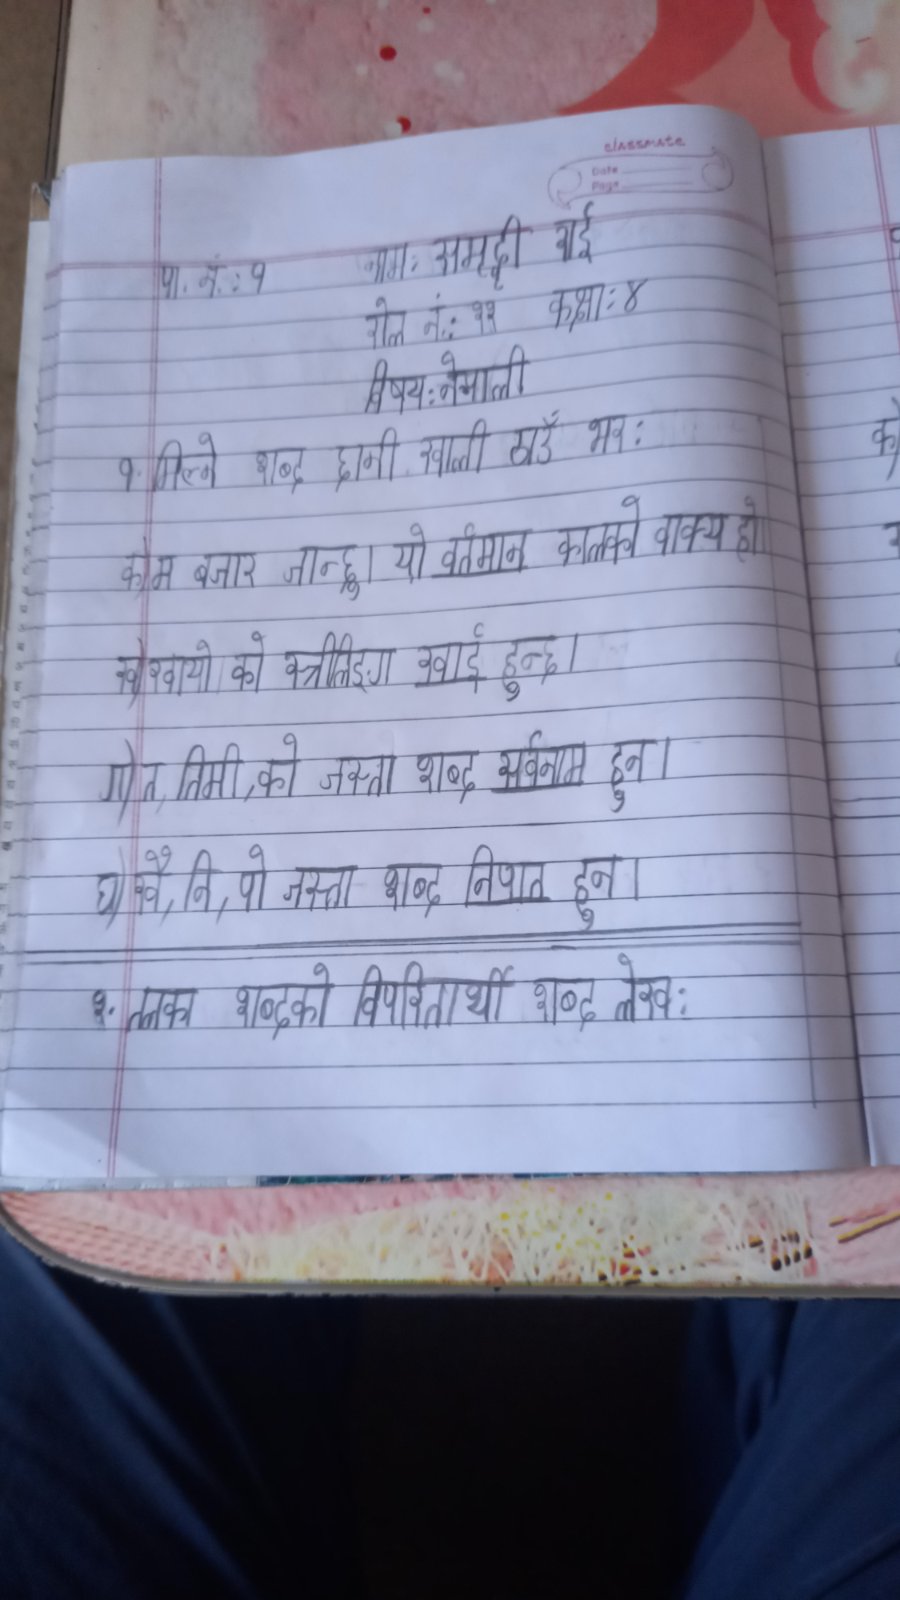 classmate
Date
Page
पा. नं.: १ नाम: समृद्दी राई
रोल नं.: २२ कक्षा: ४
विषय: नेपाली
१. मिल्ने शब्द छानी खाली ठाउँ भर:
क) म बजार जान्छु। यो वर्तमान कालको वाक्य हो।
ख) खायो को स्त्रीलिङ्ग खाई हुन्छ।
ग) त, तिमी, को जस्ता शब्द सर्वनाम हुन।
घ) खै, नि, पो जस्ता शब्द निपात हुन।
२. तलका शब्दको विपरितार्थी शब्द लेख:
को